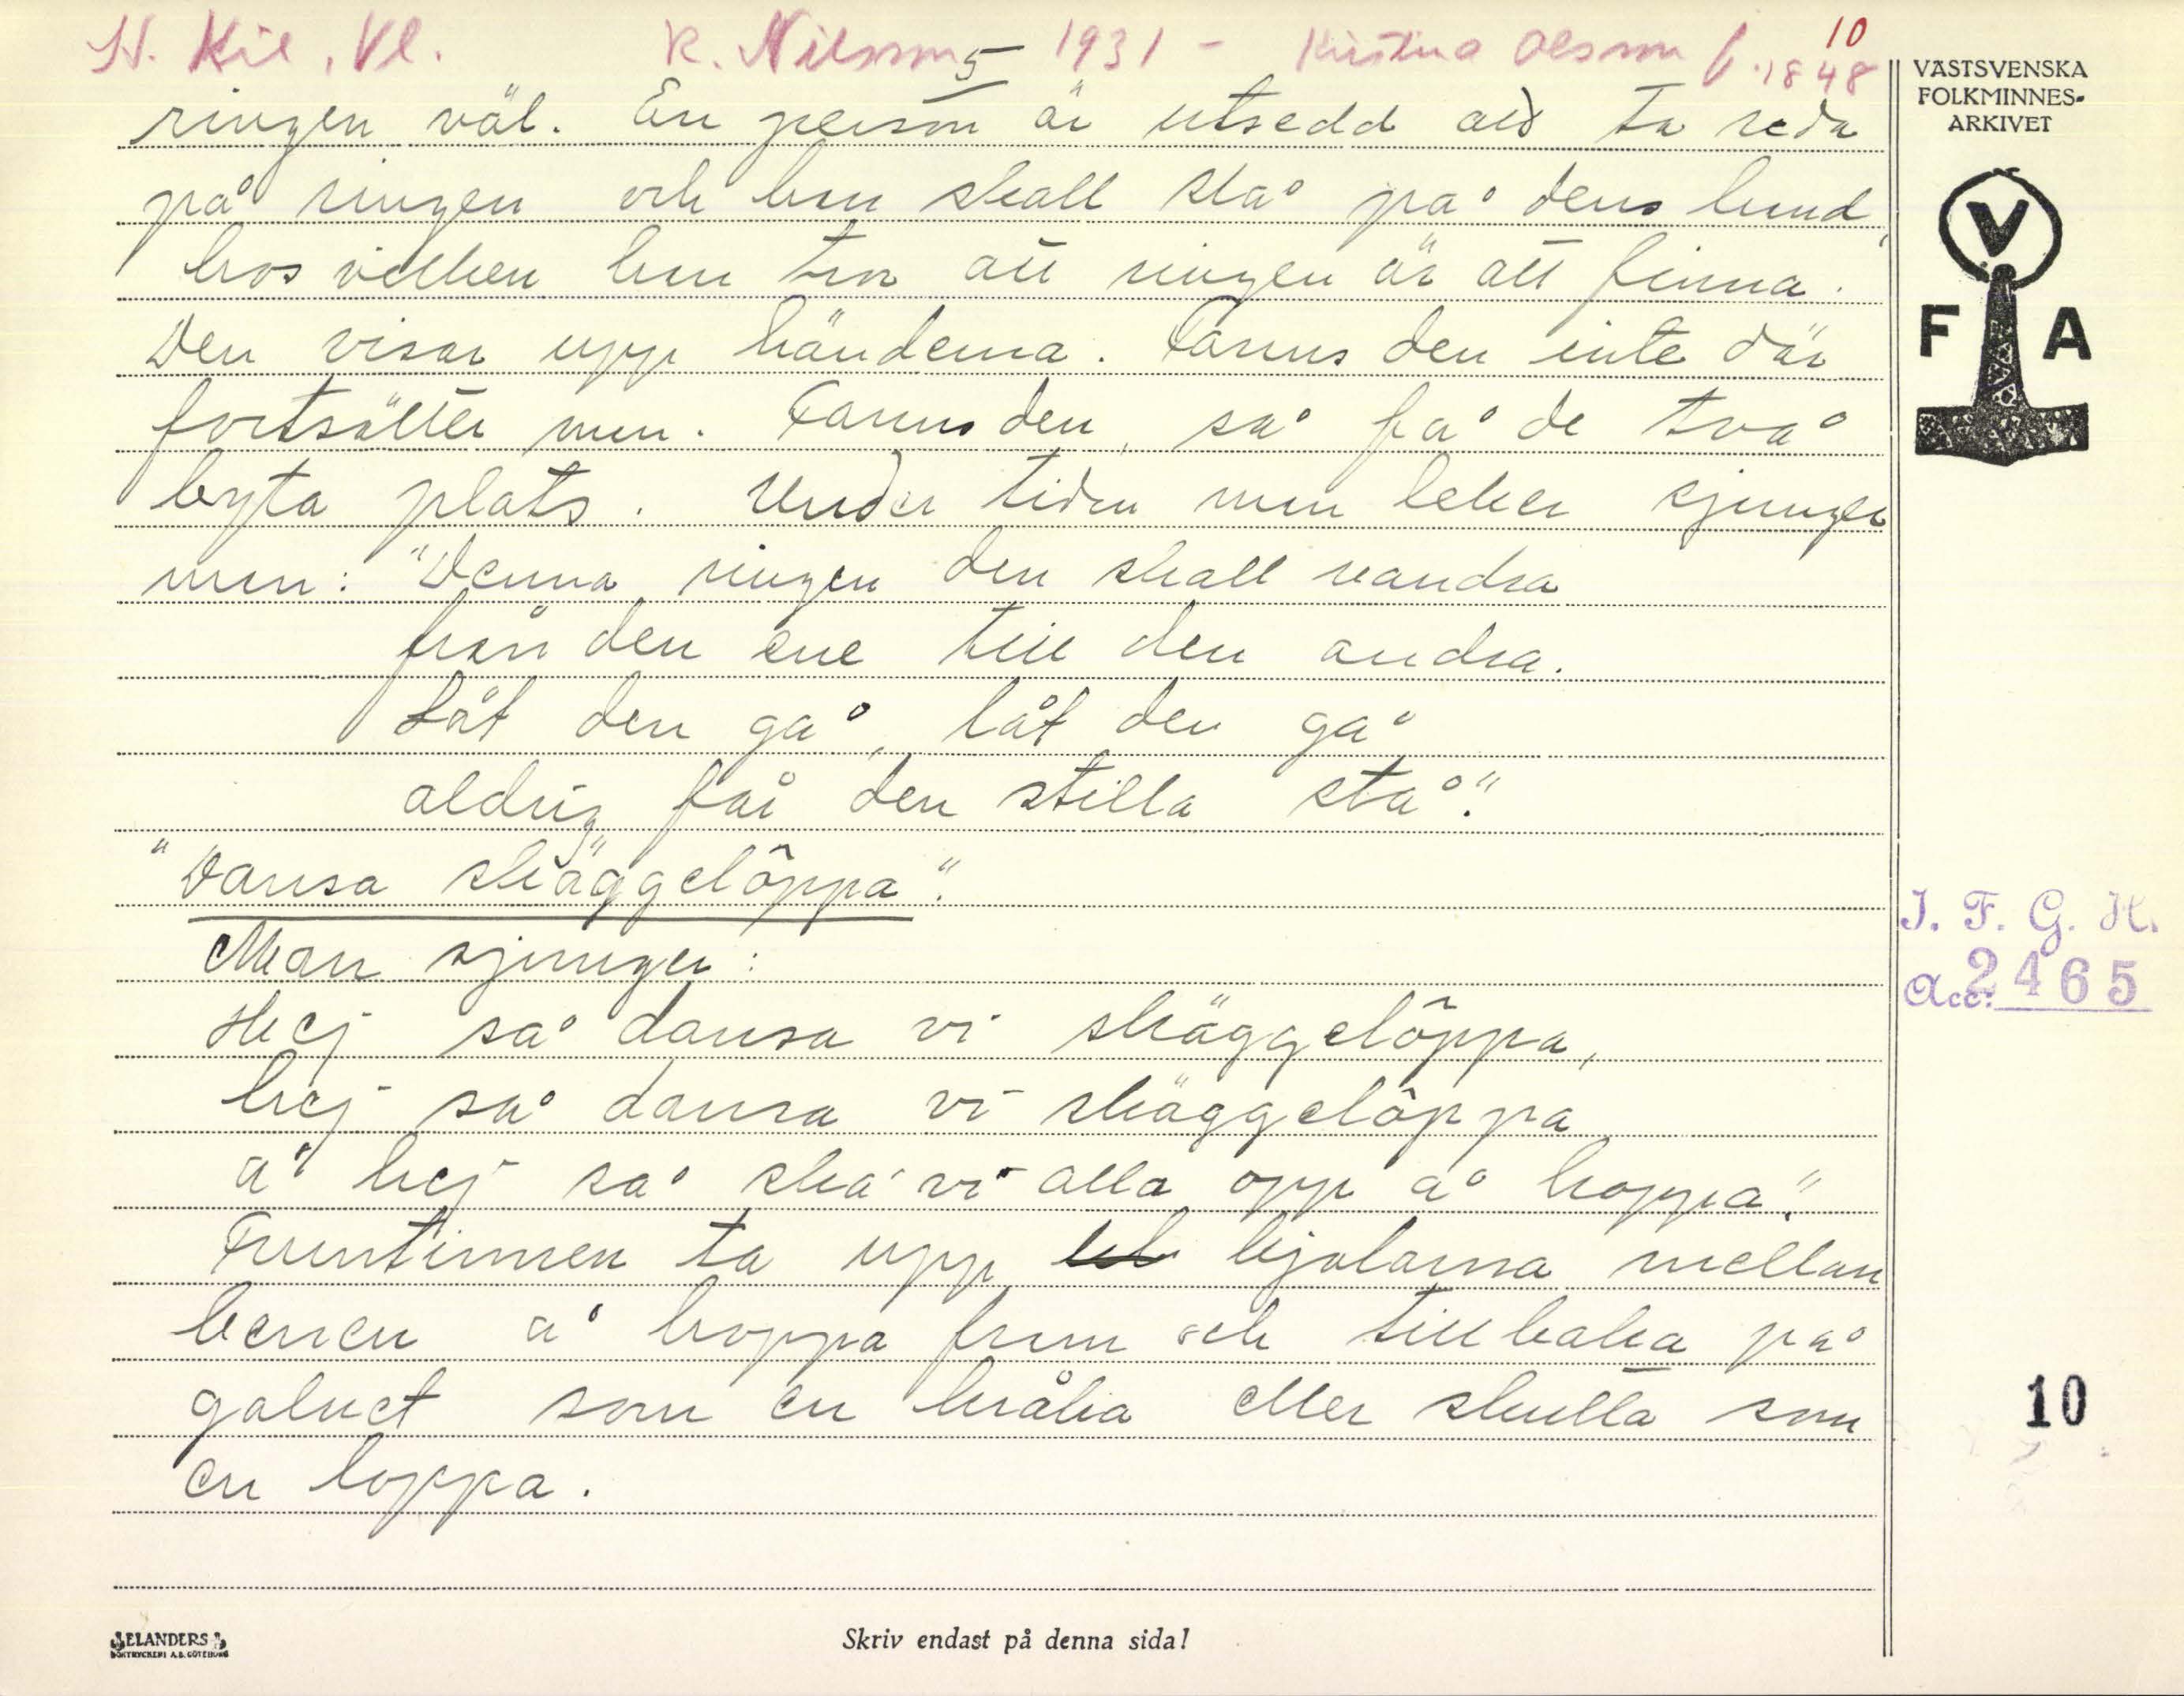 10
N. Kil, Vl. R. Nilsson 1931 - Kristina Olsson f. 1848
5
VÄSTSVENSKA
FOLKMINNES-
ARKIVET
ringen väl. En person är utsedd att ta reda
på ringen och han skall slå på dens hand,
hos vilken han tror att ringen är att finna.
Den visar upp händerna. Fanns den inte där
fortsätter man. Fanns den, så få de två
byta plats. Under tiden man leker sjunger
man: "Denna ringen den skall vandra
från den ene till den andra.
Låt den gå, låt den gå
aldrig får den stilla stå."
"Dansa skäggelôppa".
Man sjunger:
Hej så dansa vi skäggelôppa,
hej så dansa vi skäggelôppa
å hej så ska' vi alla opp å hoppa."
Fruntimren ta upp kjolarna mellan
benen å hoppa fram och tillbaka på
golvet som en kråka eller skutta som
en loppa.
V
F A
I. F. G. H.
Acc: 2465
10
ELANDERS
BOKTRYCKERI A.B. GÖTEBORG
Skriv endast på denna sida!